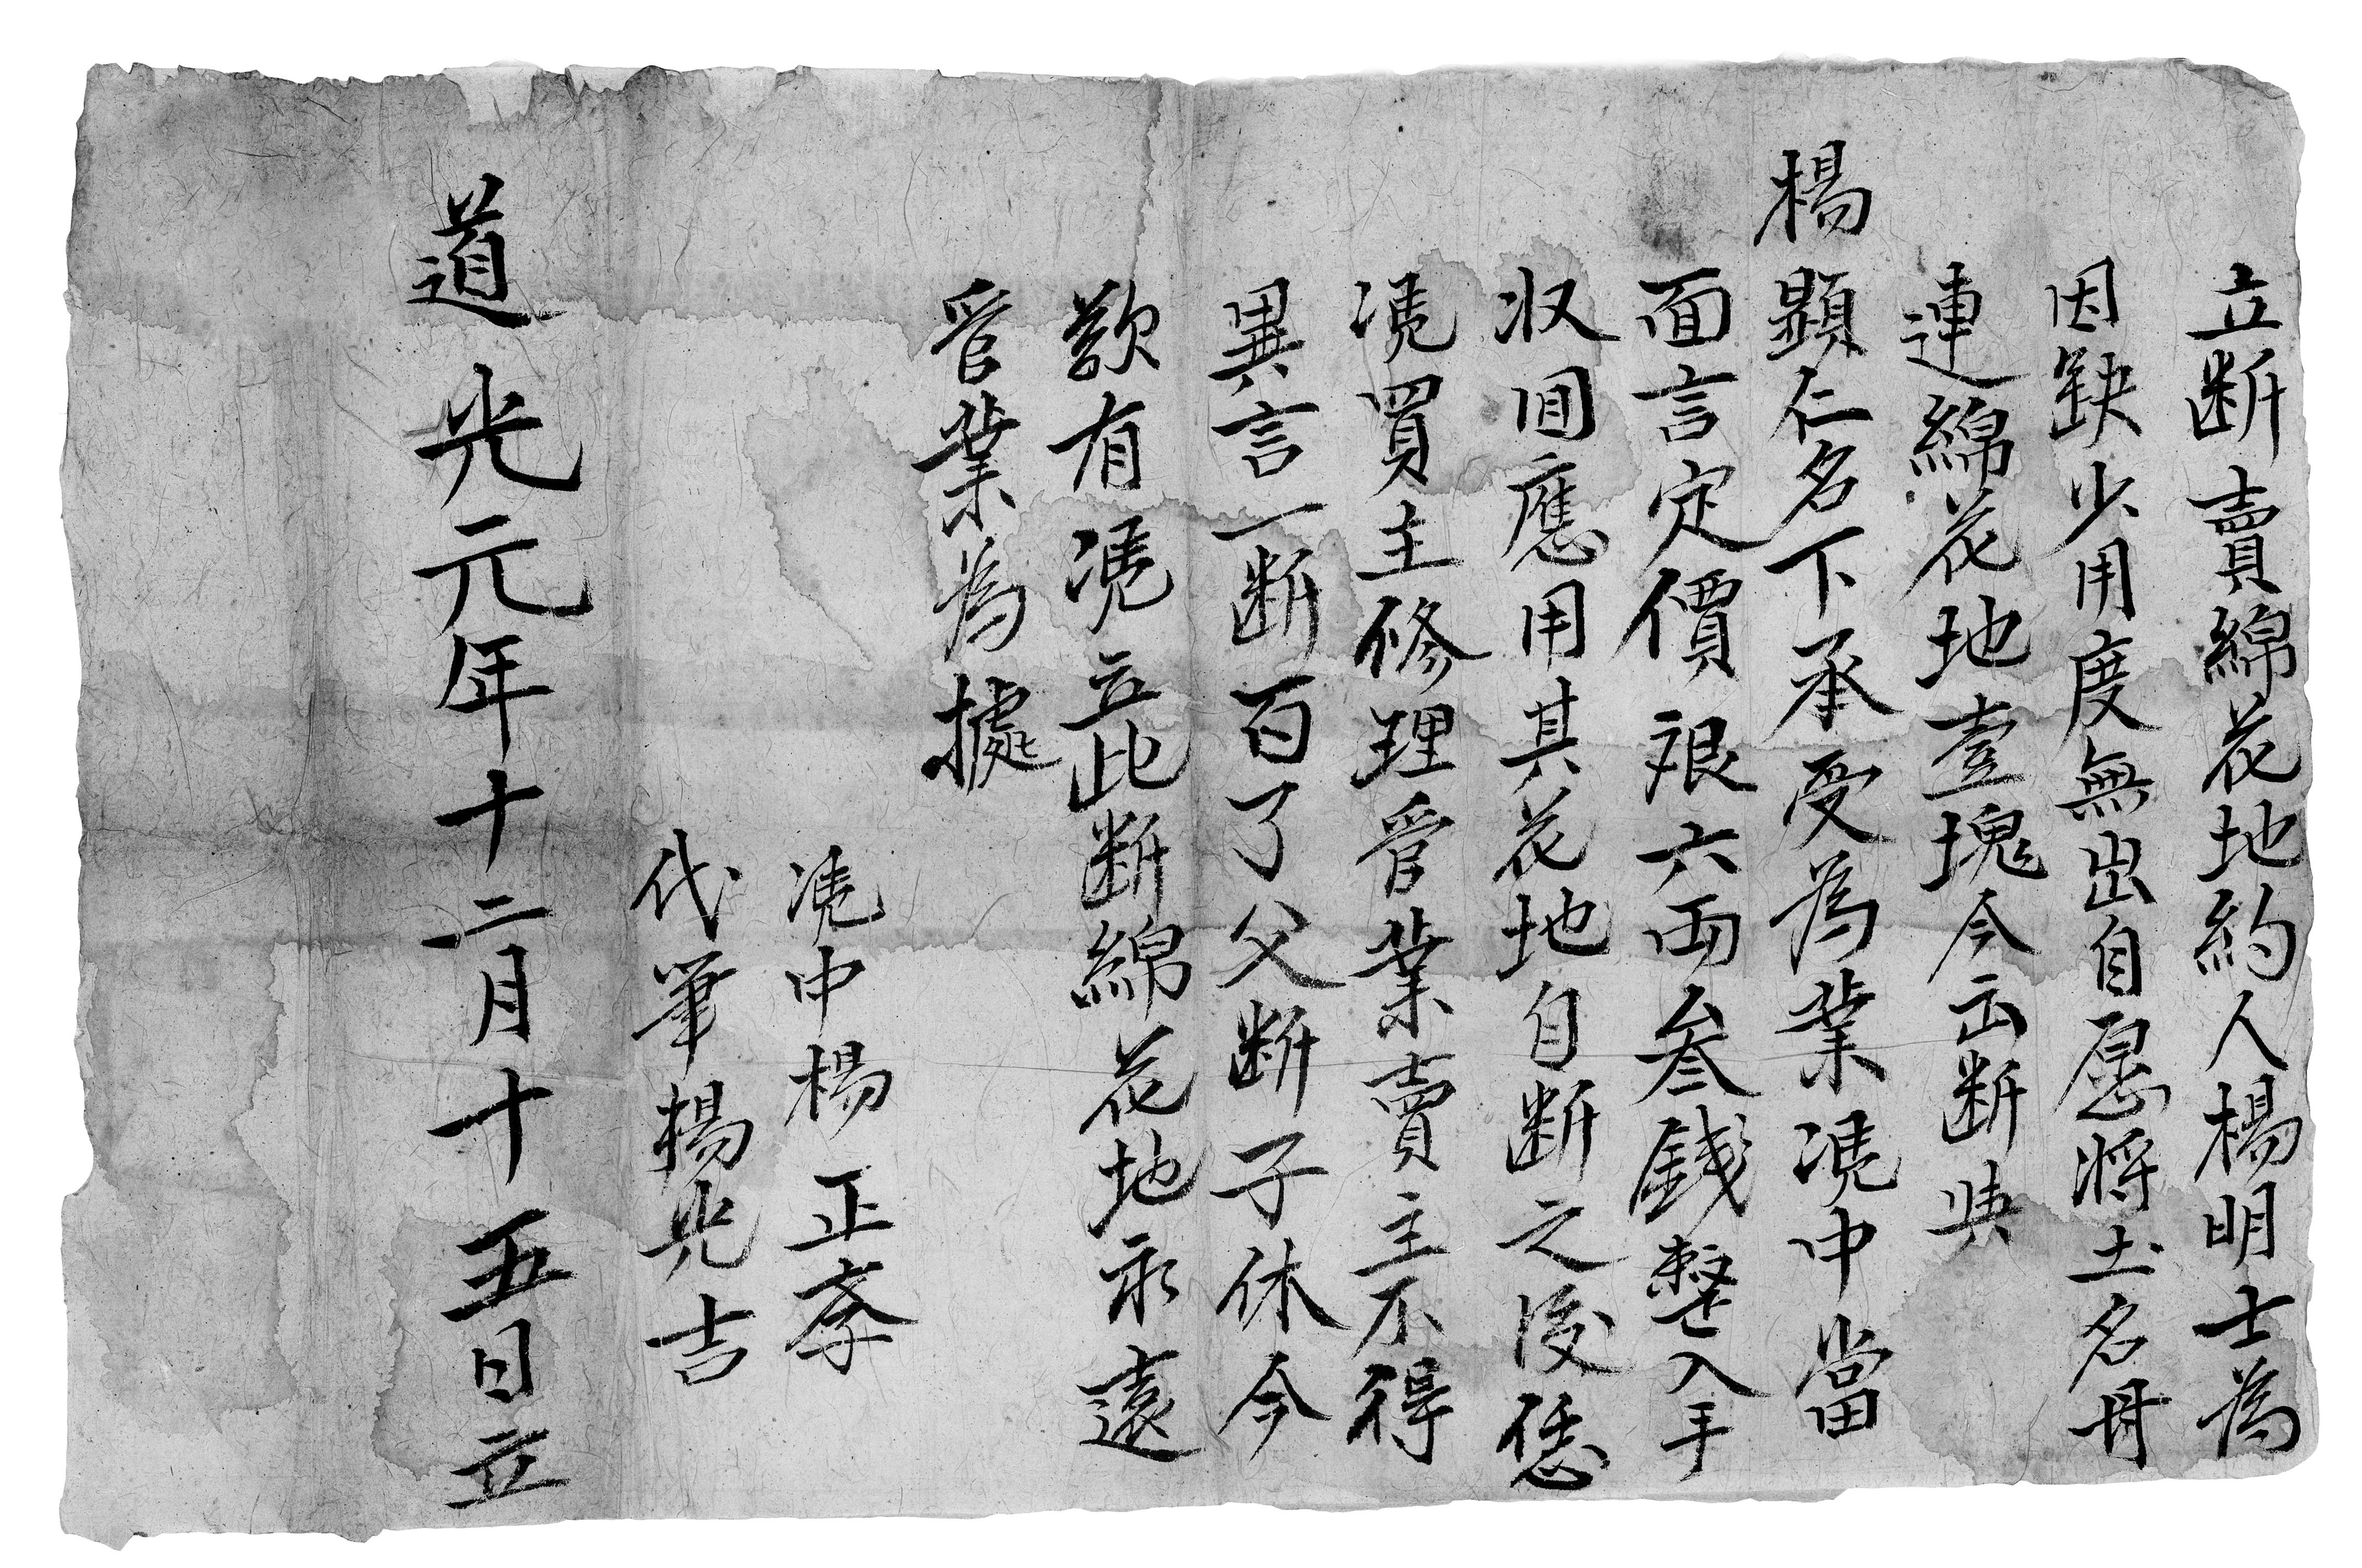 立断賣綿花地約人楊明士為
因缺少用度無出自愿将土名冊
連綿花地壹塊今出断與
楊顕仁名下承受為業凴中當
面言定價艮六両叁錢整入手
収囬應用其花地自断之後恁
凴買主修理管業賣主不得
異言一断百了父断子休今
欲有凴立此断綿花地永遠
管業為據
凴中楊正孝
代筆楊光吉
道光元年十二月十五日立